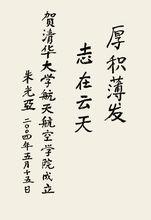 厚积薄发
志在云天
贺清华大学航天航空学院成立
朱光亚
二〇〇四年五月十五日